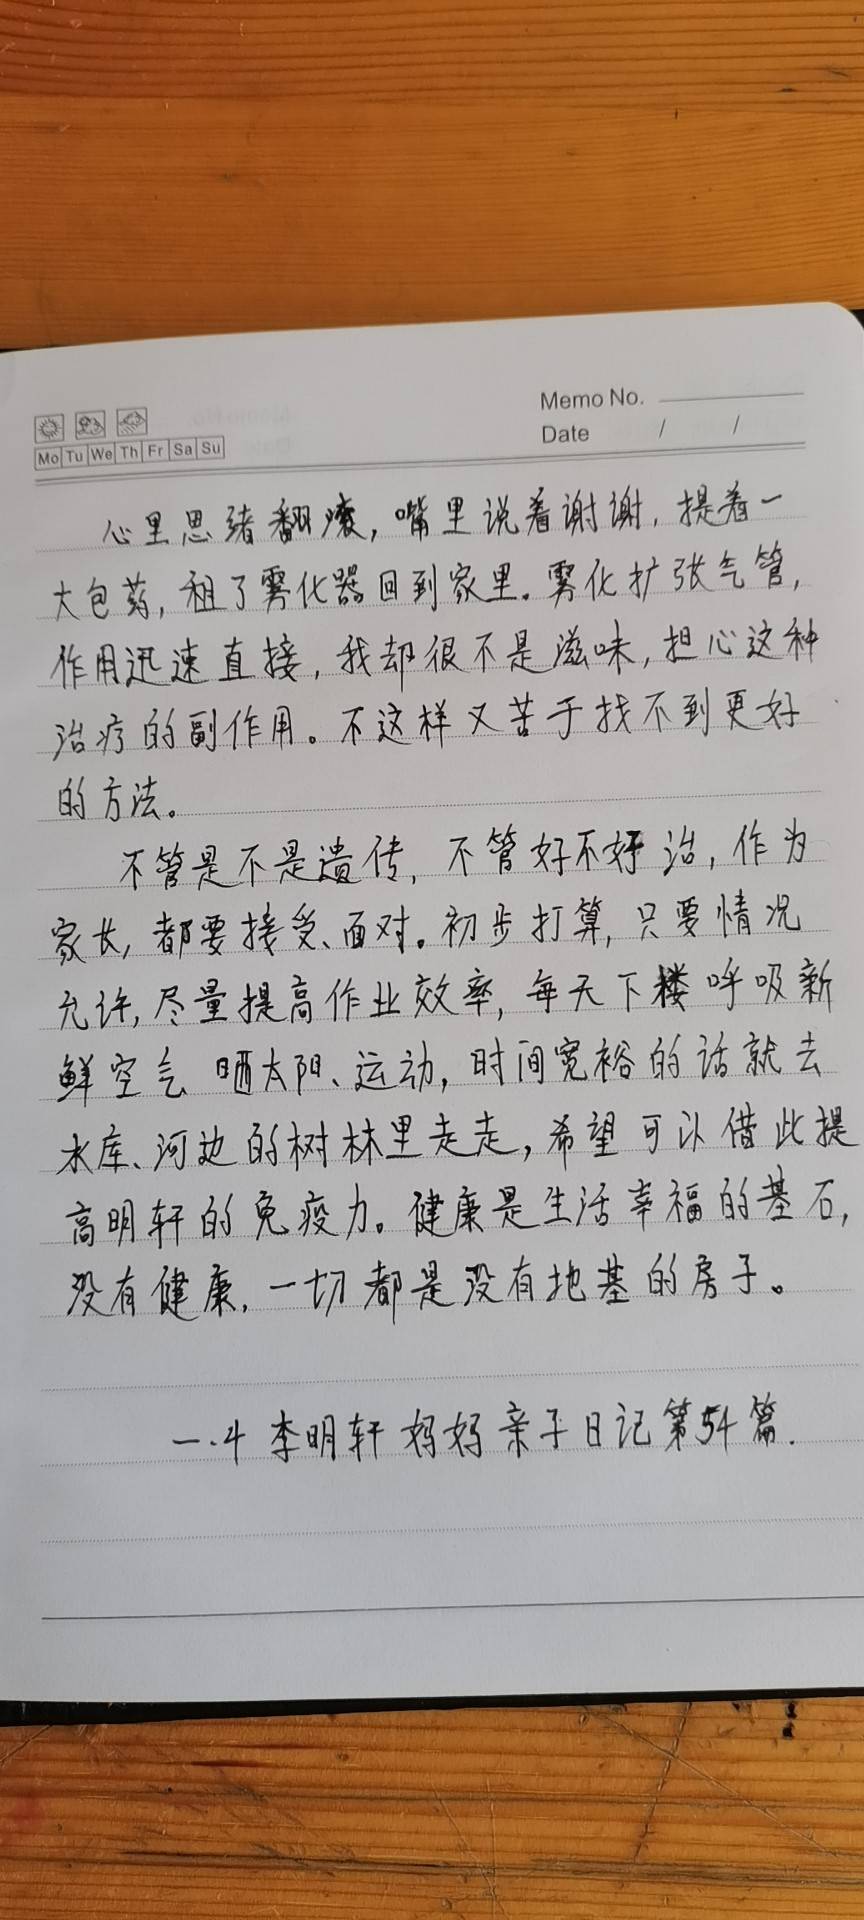 Memo No.
Mo Tu We Th Fr Sa Su
Date / /
心里思绪翻滚，嘴里说着谢谢，提着一
大包药，租了雾化器回到家里。雾化扩张气管，
作用迅速直接，我却很不是滋味，担心这种
治疗的副作用。不这样又苦于找不到更好
的方法。
不管是不是遗传，不管好不好治，作为
家长，都要接受、面对。初步打算，只要情况
允许，尽量提高作业效率，每天下楼呼吸新
鲜空气 晒太阳、运动，时间宽裕的话就去
水库、河边的树林里走走，希望可以借此提
高明轩的免疫力。健康是生活幸福的基石，
没有健康，一切都是没有地基的房子。
一.4 李明轩妈妈亲子日记第54篇.